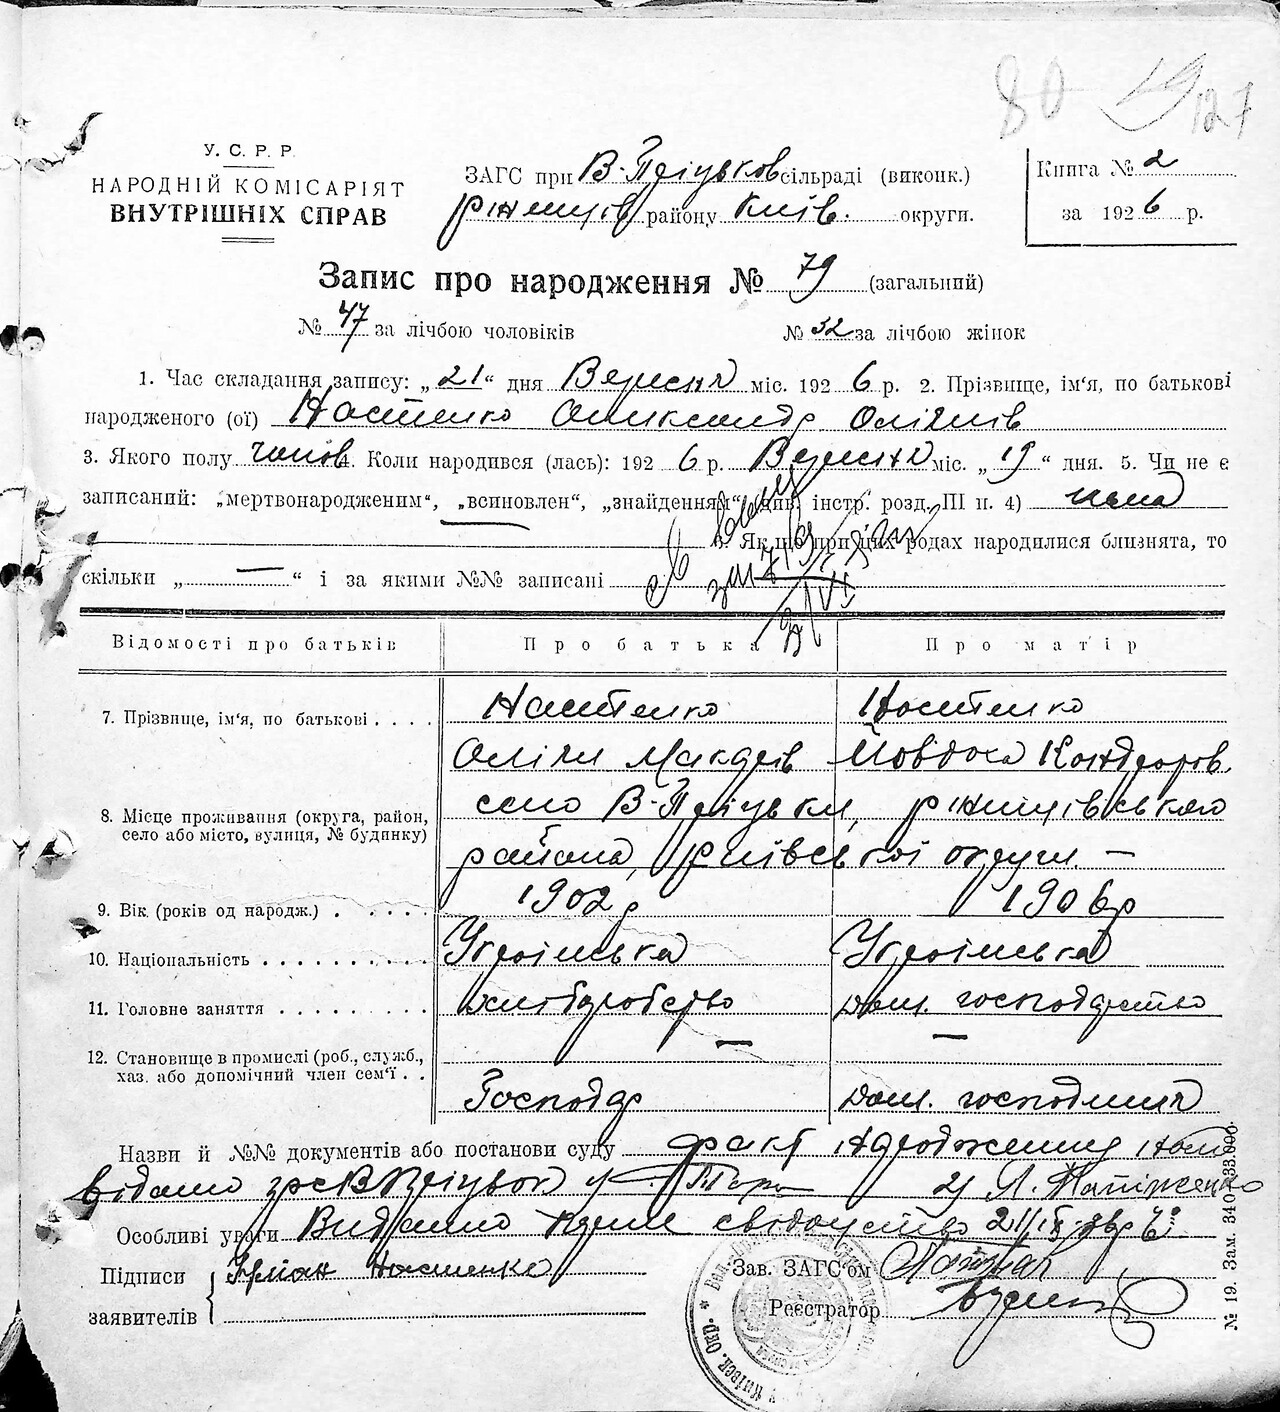 80 19 127
У. С. Р. Р.
НАРОДНІЙ КОМІСАРІЯТ
ВНУТРІШНІХ СПРАВ
ЗАГС при В-Пріцьков сільраді (виконк.)
Ржищів району Київ. округи.
Книга № 2
за 1926 р.
Запис про народження № 79 (загальний)
№ 47 за лічбою чоловіків № 32 за лічбою жінок
1. Час складання запису: „21“ дня Вересня міс. 1926 р. 2. Прізвище, ім'я, по батькові
народженого (ої) Настенко Олександр
3. Якого полу чолов. 4. Коли народився (лась): 1926 р. Вересня міс. „19“ дня. 5. Чи не є
записаний: „мертвонародженим“, „всиновлен“, „знайденням“ (див. інстр. розд. III п. 4) нема
6. Як що при цих родах народилися близнята, то
скільки „—“ і за якими №№ записані
Відомості про батьків Про батька Про матір
7. Прізвище, ім'я, по батькові . . . . Настенко Настенко
Йовдоха Кондратов.
8. Місце проживання (округа, район,
село або місто, вулиця, № будинку)
село В-Пріцьки, Ржищівського
района, Київської округи —
9. Вік (років од народж.) . . . . . 1902 р 1906 р
10. Національність . . . . . . . . . . Українська Українська
11. Головне заняття . . . . . . . . . хліборобство Дом. господарство
12. Становище в промислі (роб., служб.,
хаз. або допомічний член сем'ї . .
— —
Господар Дом. господиня
Назви й №№ документів або постанови суду факт народження
відомо
Особливі уваги Видано
Підписи Настенко
заявителів
Зав. ЗАГС'ом
Реєстратор
№ 19. Зам. 340—33.000